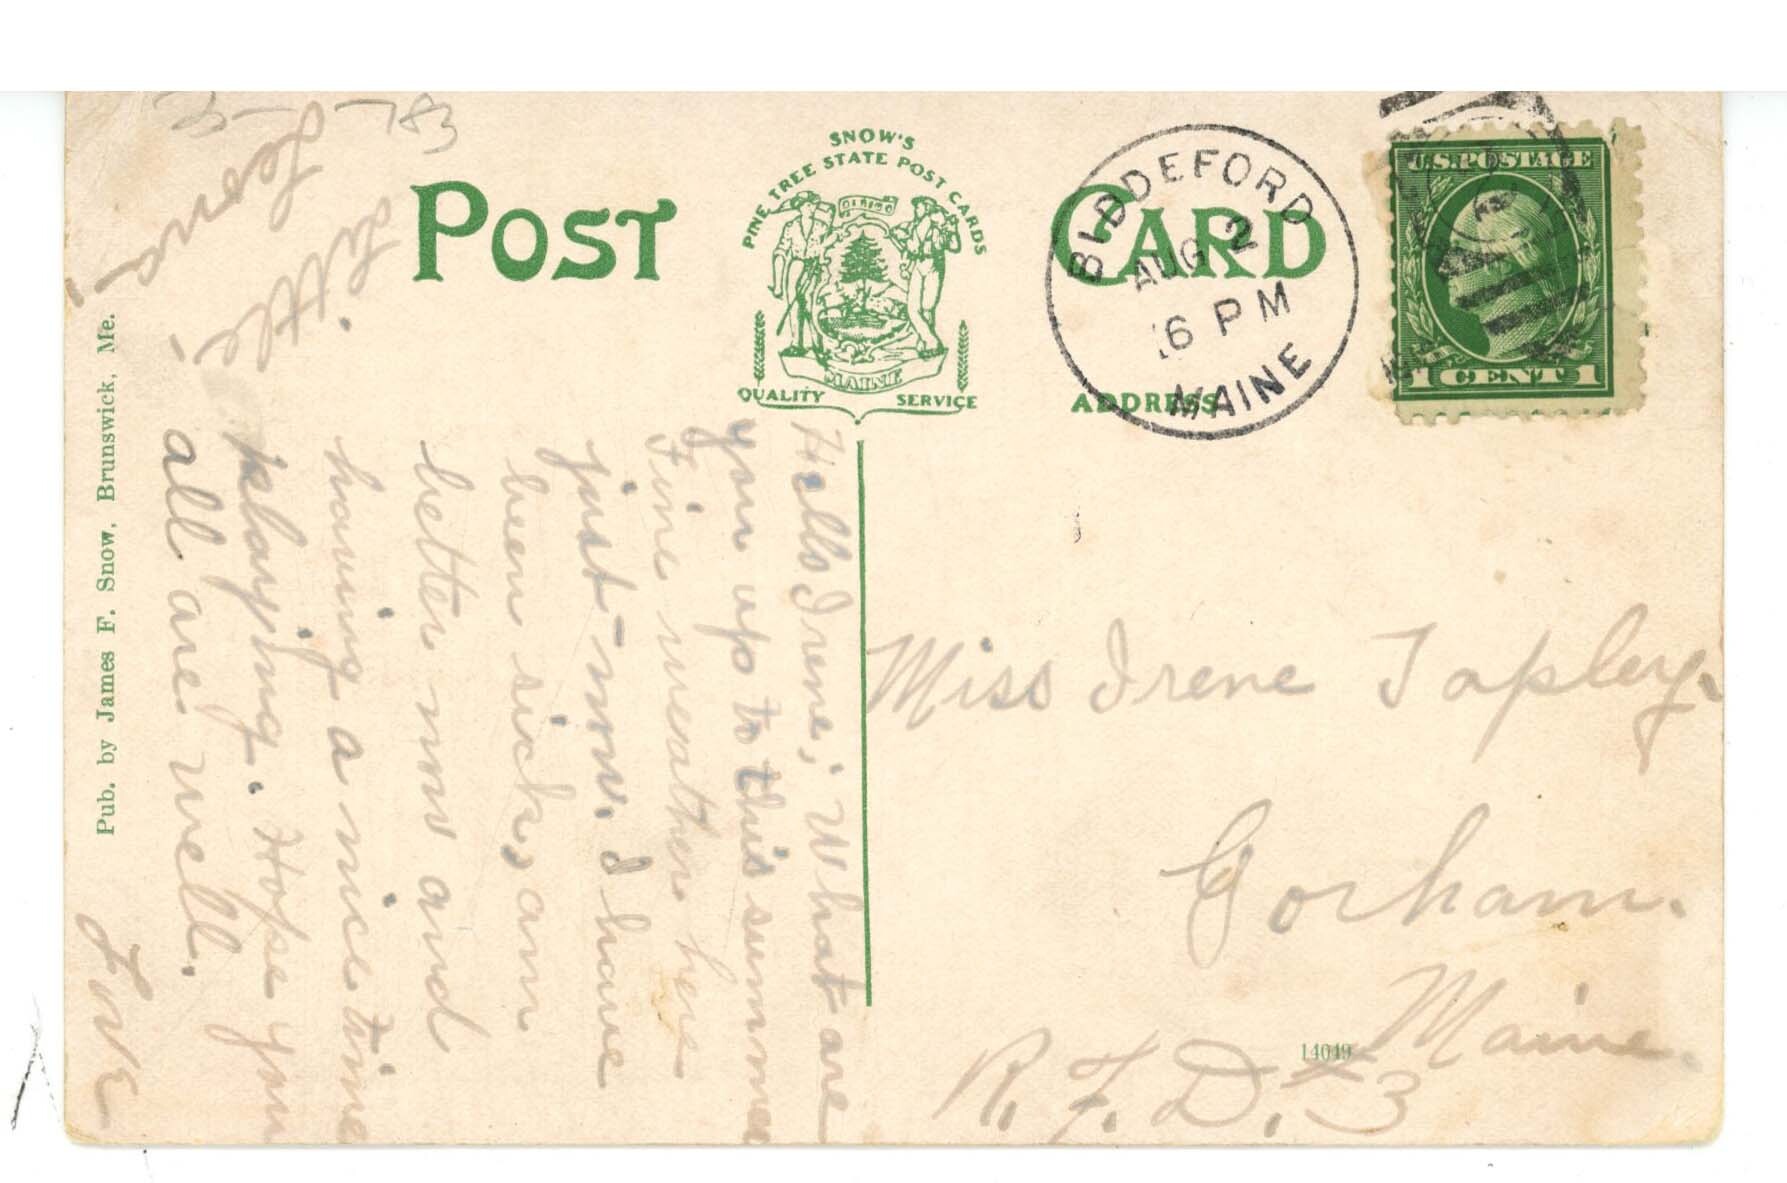 SNOW'S
PINE TREE STATE POST CARDS
POST CARD
DIRIGO
MAINE
QUALITY SERVICE
ADDRESS
BIDDEFORD
AUG 2
6 PM
MAINE
U.S. POSTAGE
1 CENT 1
Hello Irene; What are
you up to this summer
Fine weather here
just now. I have
been sick, am
better now and
having a nice time
playing. Hope you
all are well.
Love
Little
Leora
783
Miss Irene Tapley.
Gorham.
Maine.
R.F.D. 3
14049
Pub. by James F. Snow, Brunswick, Me.